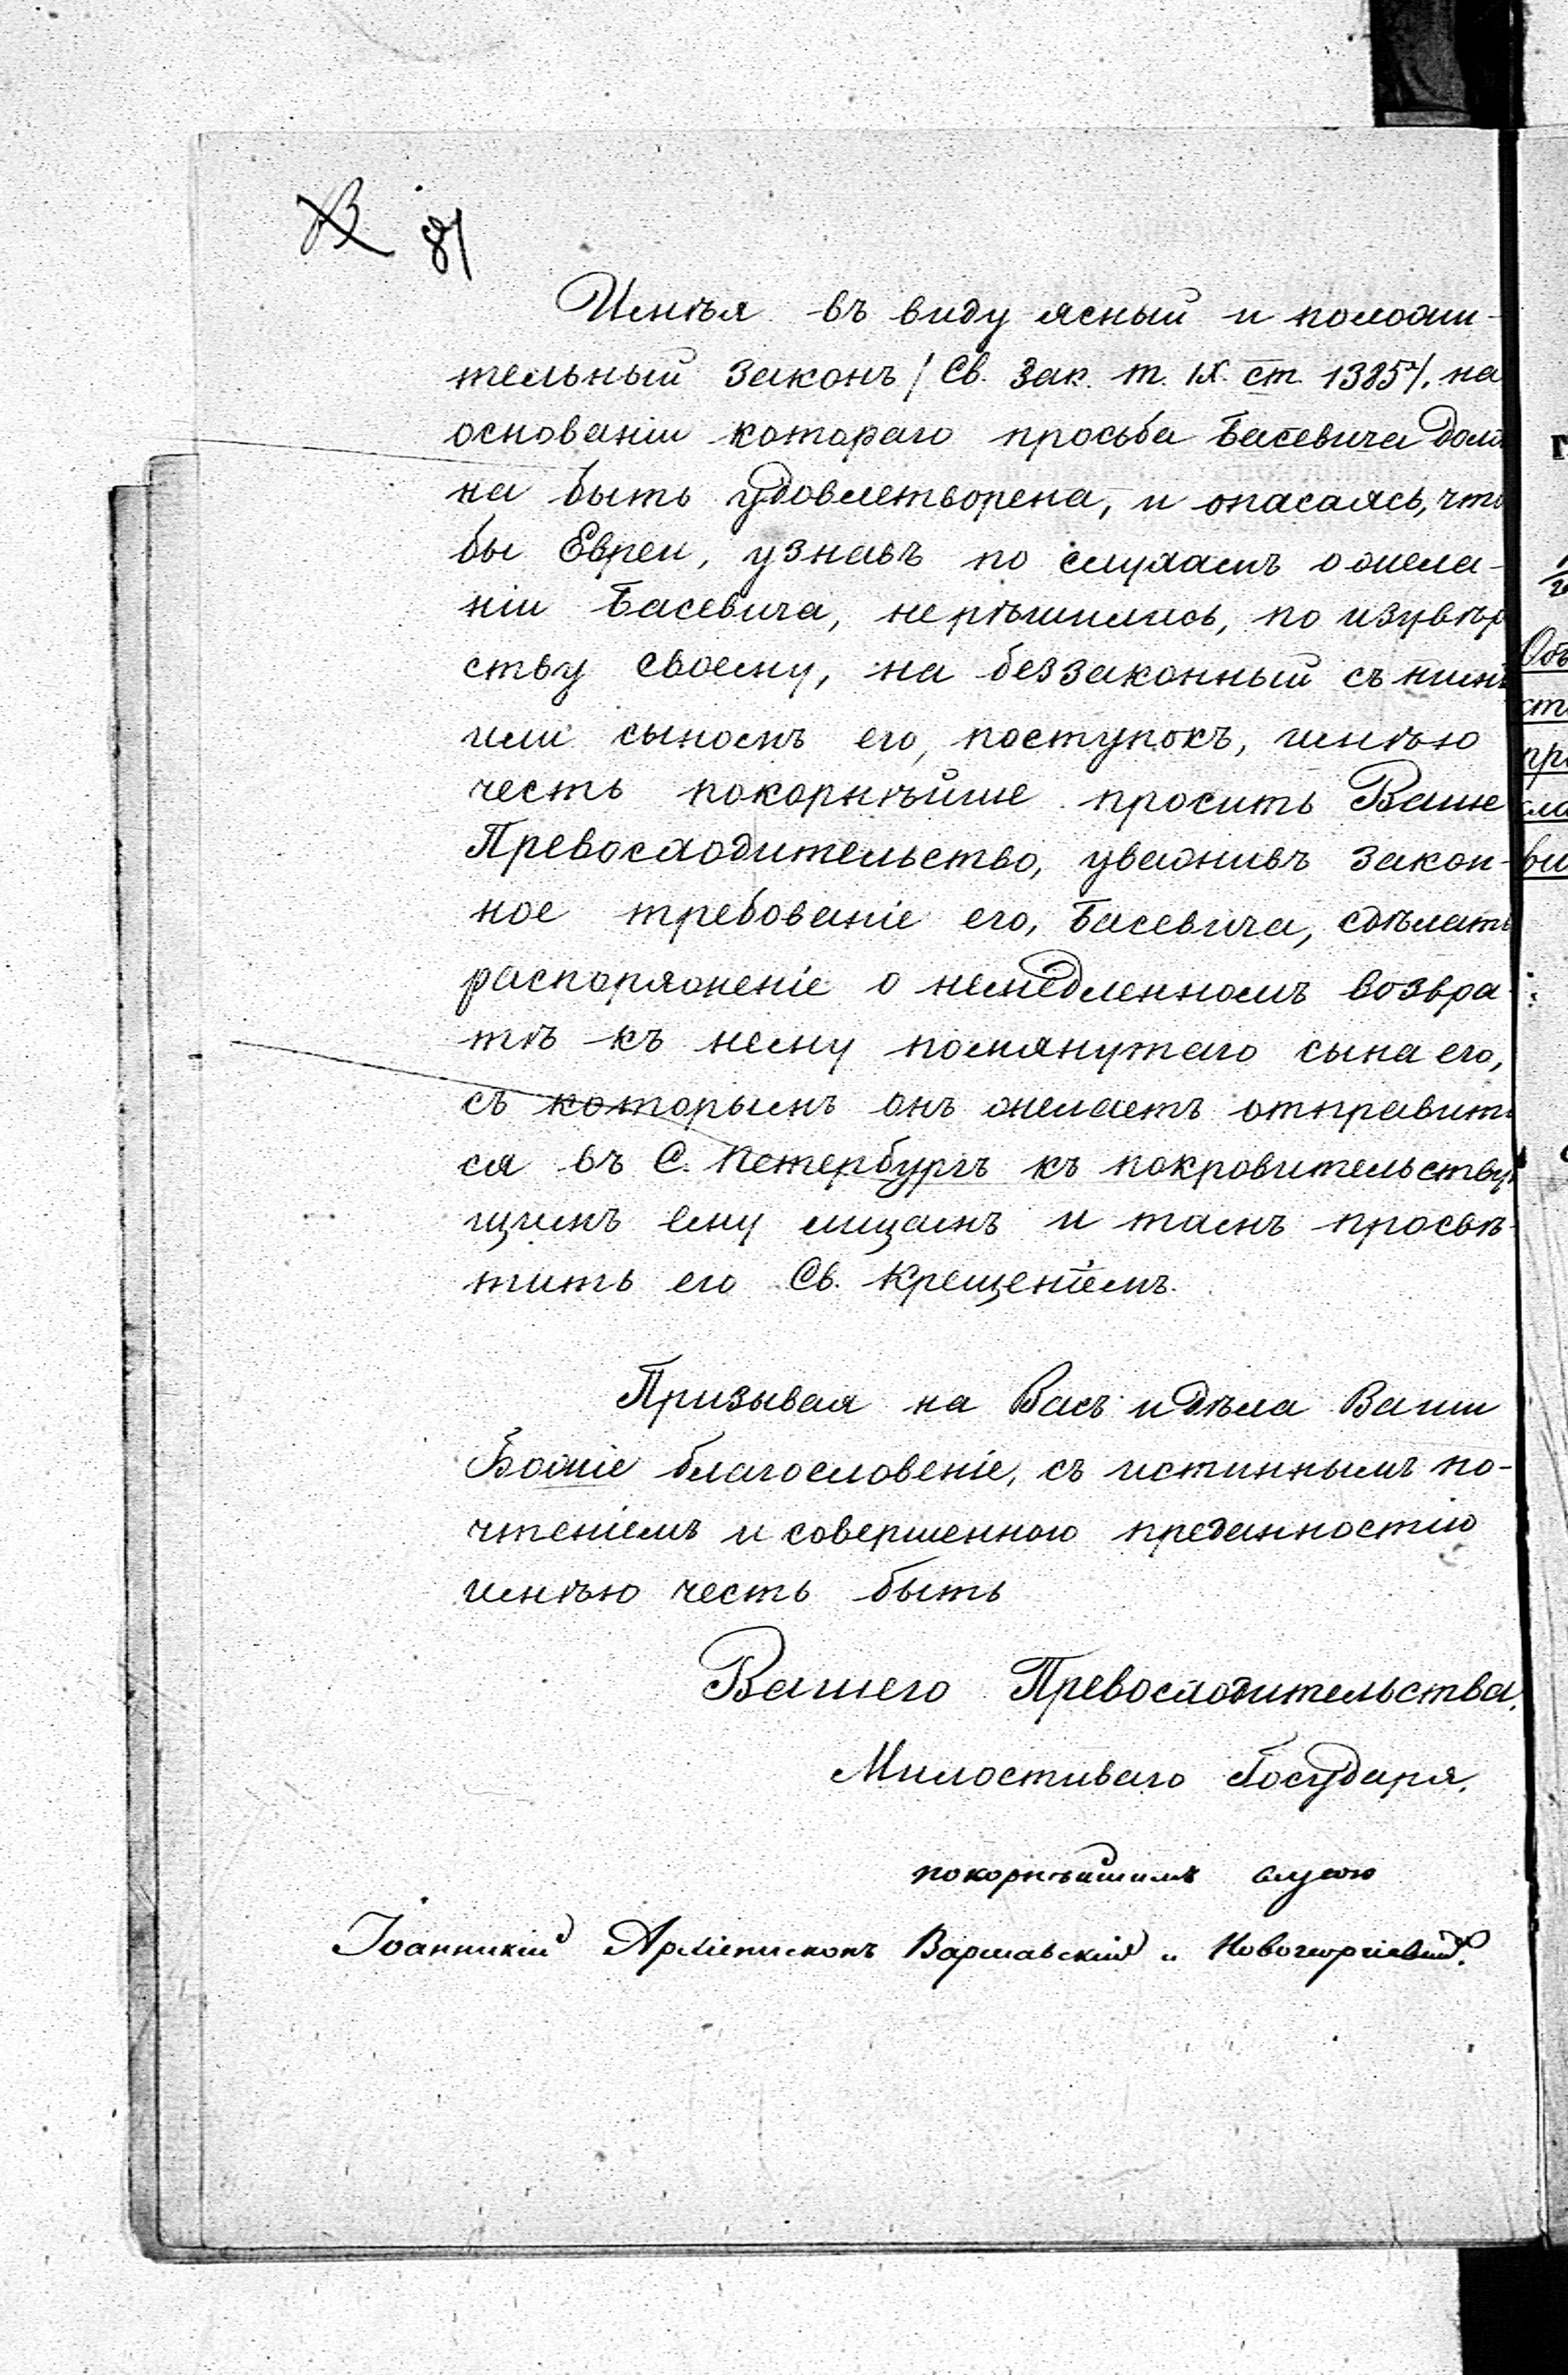 81
Имѣя въ виду ясный и положи-
тельный законъ / Св. Зак. т. IX. ст. 1385 /, на
основаніи котораго просьба Басевича долж
на быть удовлетворена, и опасаясь, что
бы Евреи, узнавъ по слухамъ о жела-
ніи Басевича, не рѣшились, по изувѣр
ству своему, на беззаконный съ нимъ
или сыномъ его, поступокъ, имѣю
честь покорнѣйше просить Ваше
Превосходительство, уваживъ закон-
ное требованіе его, Басевича, сдѣлать
распоряженіе о немедленномъ возвра-
тѣ къ нему помянутаго сына его,
съ которымъ онъ желаетъ отправить
ся въ С. Петербургъ къ покровительствую
щимъ ему лицамъ и тамъ просвѣ-
тить его Св. Крещеніемъ.
Призывая на Васъ и дѣла Ваши
Божіе благословеніе, съ истиннымъ по-
чтеніемъ и совершенною преданностію
имѣю честь быть
Вашего Превосходительства,
Милостиваго Государя,
покорнѣйшимъ слугою
Іоанникій Архіепископъ Варшавскій и Новогеоргіевскій.